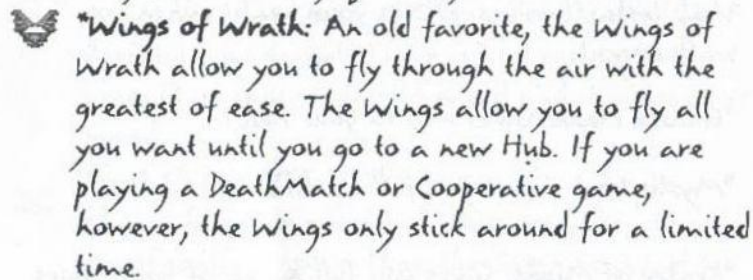 *Wings of Wrath: An old favorite, the Wings of
Wrath allow you to fly through the air with the
greatest of ease. The Wings allow you to fly all
you want until you go to a new Hub. If you are
playing a DeathMatch or Cooperative game,
however, the Wings only stick around for a limited
time.